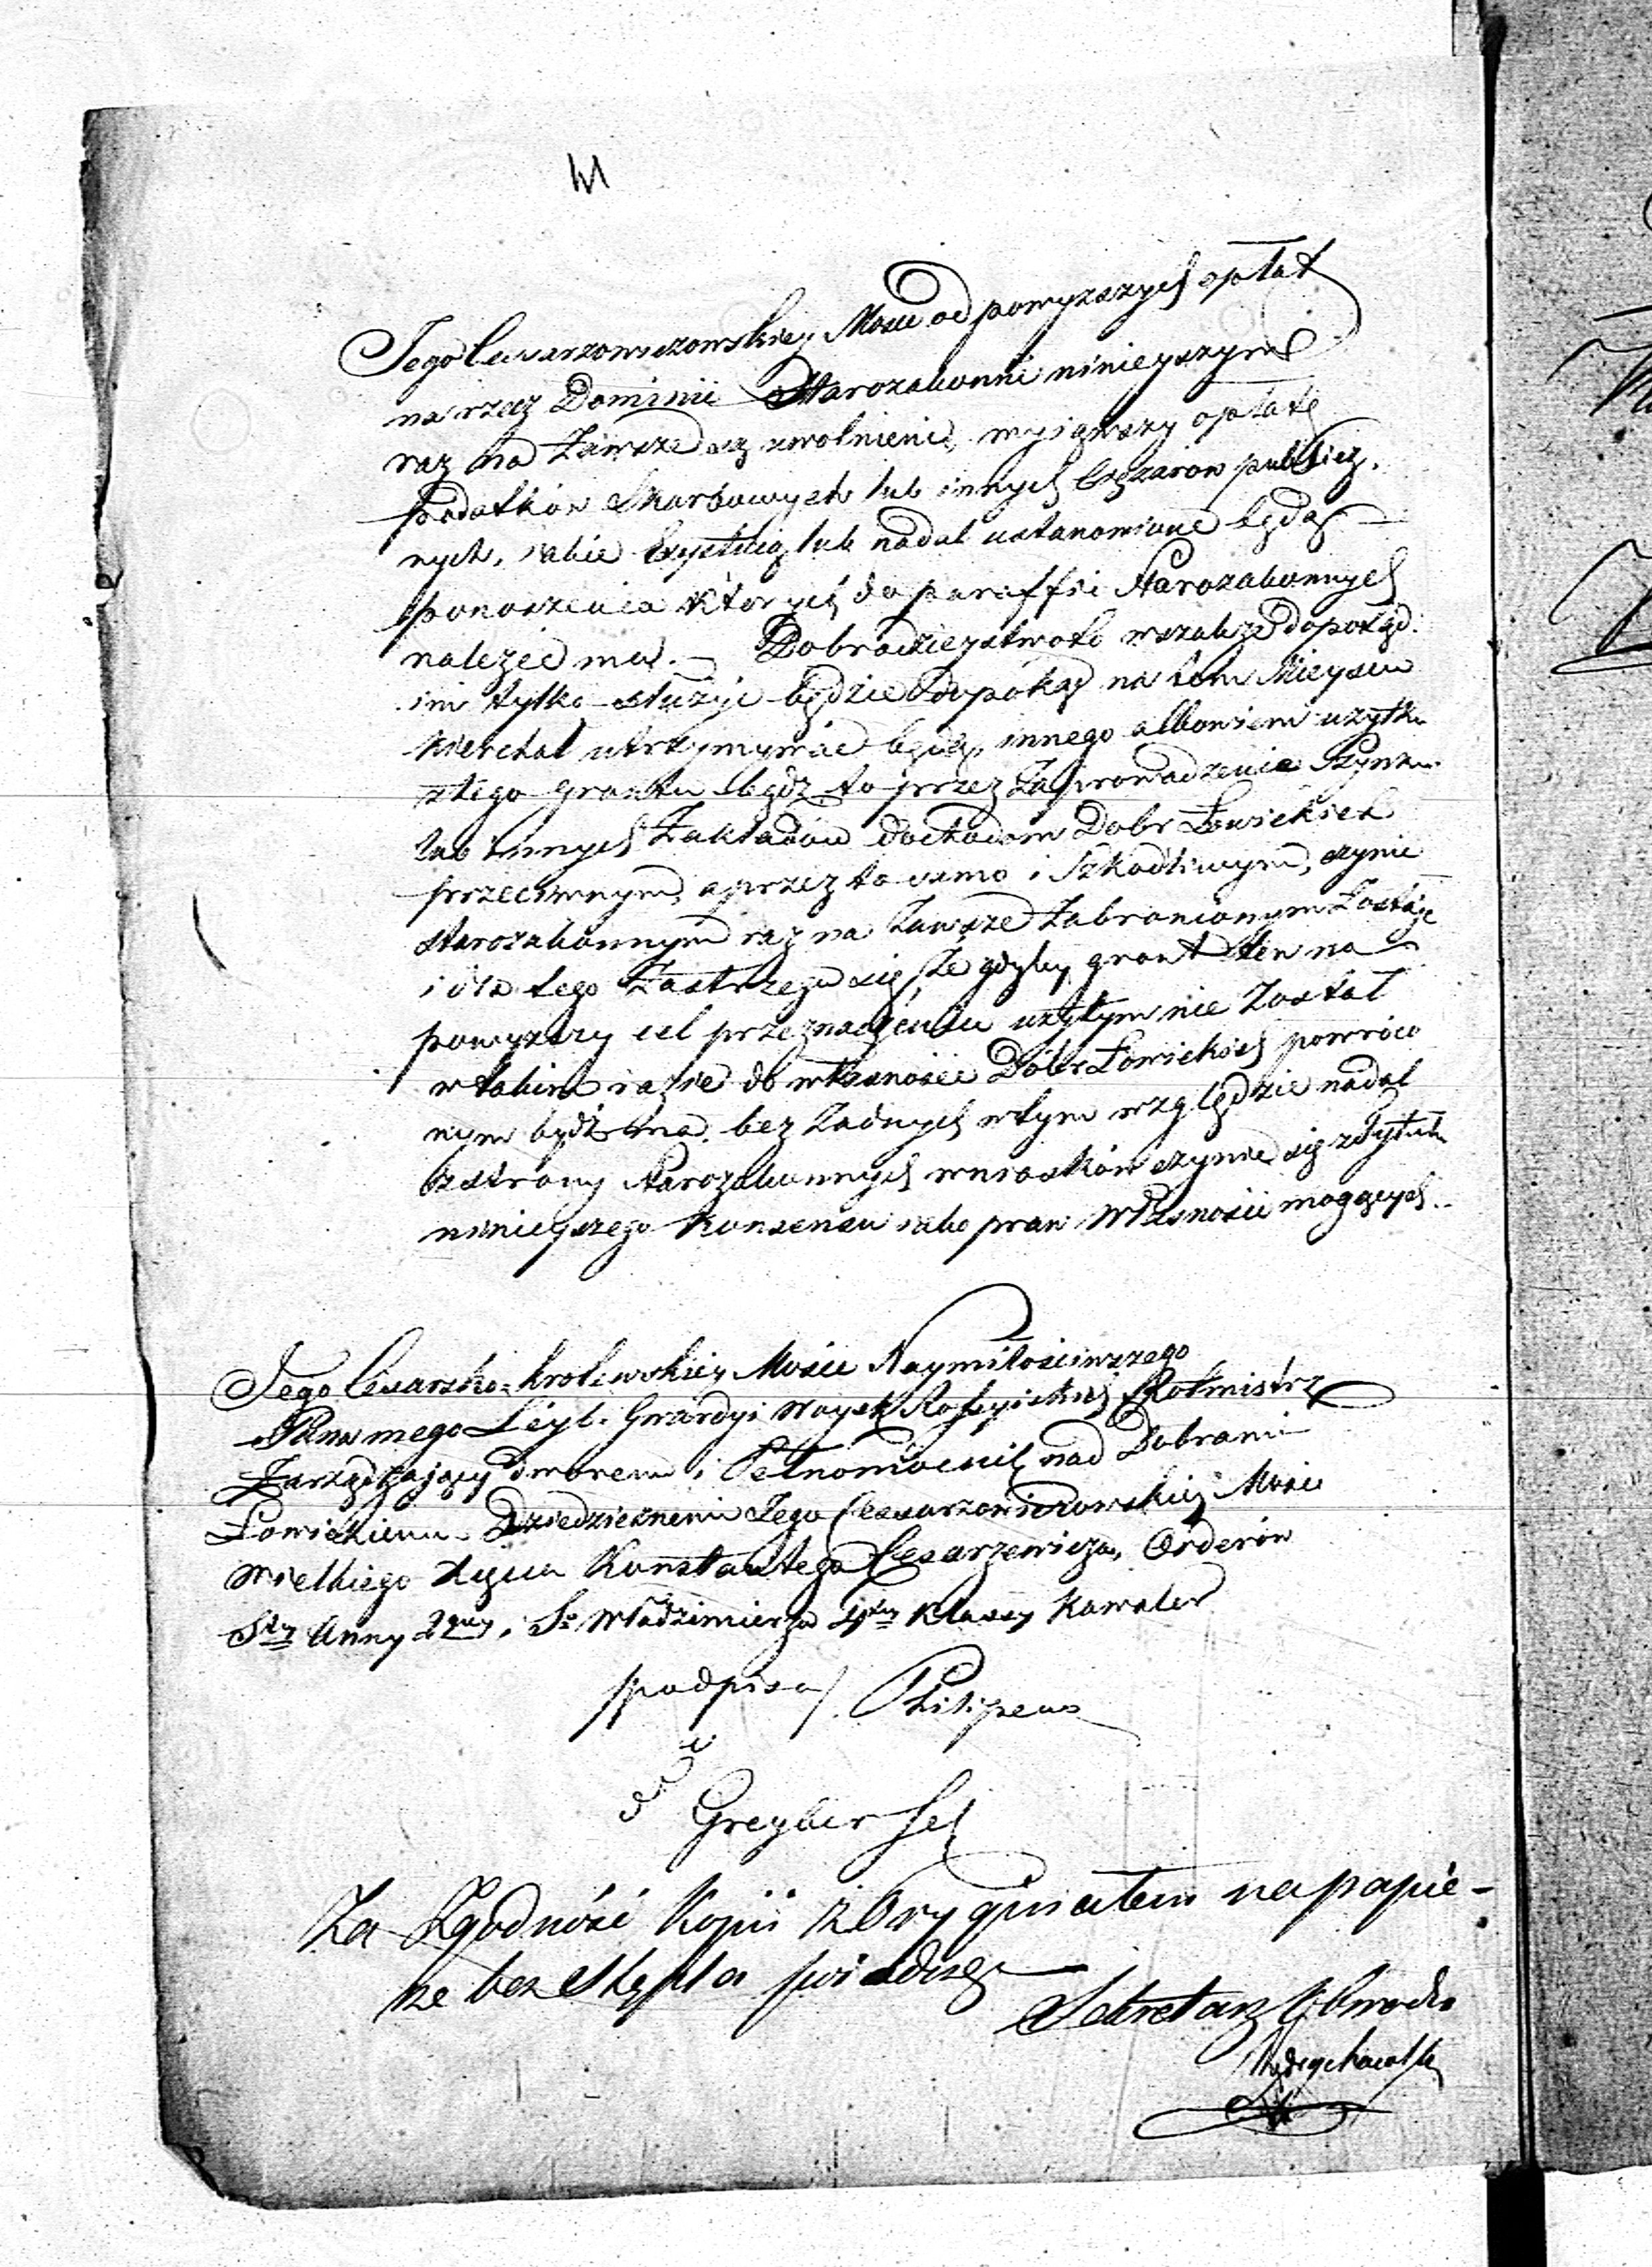 Jego Cesarzowiczowskiey Mości od powyzszych opłat
na rzecz Dominii Starozakonni ninieyszym
raz na Zawsze są uwolnieni, wyiąwszy opłatę
podatków Skarbowych lub innych Ciężarow publicz-
nych, iakie Exystuią lub nadal ustanowione będą
ponoszenia których do paraffii Starozakonnych
należeć ma. – Dobrodzieystwo to wszakże dopokąd
im tylko służyć będzie dopokąd na tem Mieyscu
Kierchał utrzymywać będą, innego albowiem użytku
z tego gruntu bądź to przez Zaprowadzenie Szynku
lub innych Zakładów dochodom Dobr Łowickich
przeciwnym, a przez to samo i Szkodliwym, czynić
starozakonnym raz na Zawsze Zabronionym Zostaje
i dla tego Zastrzega się, Że gdyby grunt ten na
powyższy cel przeznaczeniu użytym nie Został
w takim razie do własności Dóbr Łowickich powróco
nym bydź ma, bez Żadnych w tym względzie nadal
ze strony Starozakonnych wniosków czynić się z tytułu
ninieyszego Konsensu iako praw Własności mogących.
Jego Cesarsko-Krolewskiey Mości Naymiłościwszego
Pana mego Leyb. Gwardyi Woysk Rossyiskich Rotmistrz
Zarządzaiący dworem i Pełnomocnik nad Dobrami
Łowickiemi Dziedzicznemi Jego Cesarzowiczowskiey Mości
Wielkiego Xięcia Konstantego Cesarzewicza, Orderów
Stey Anny 2giey i Sgo Włodzimierza 4tey Klassy Kawaler
/podpisa/ Philipeus
Greyber Sek
Za Zgodność Kopii z Oryginałem na papie-
rze bez stępla poświadcza
Sekretarz Obwodu